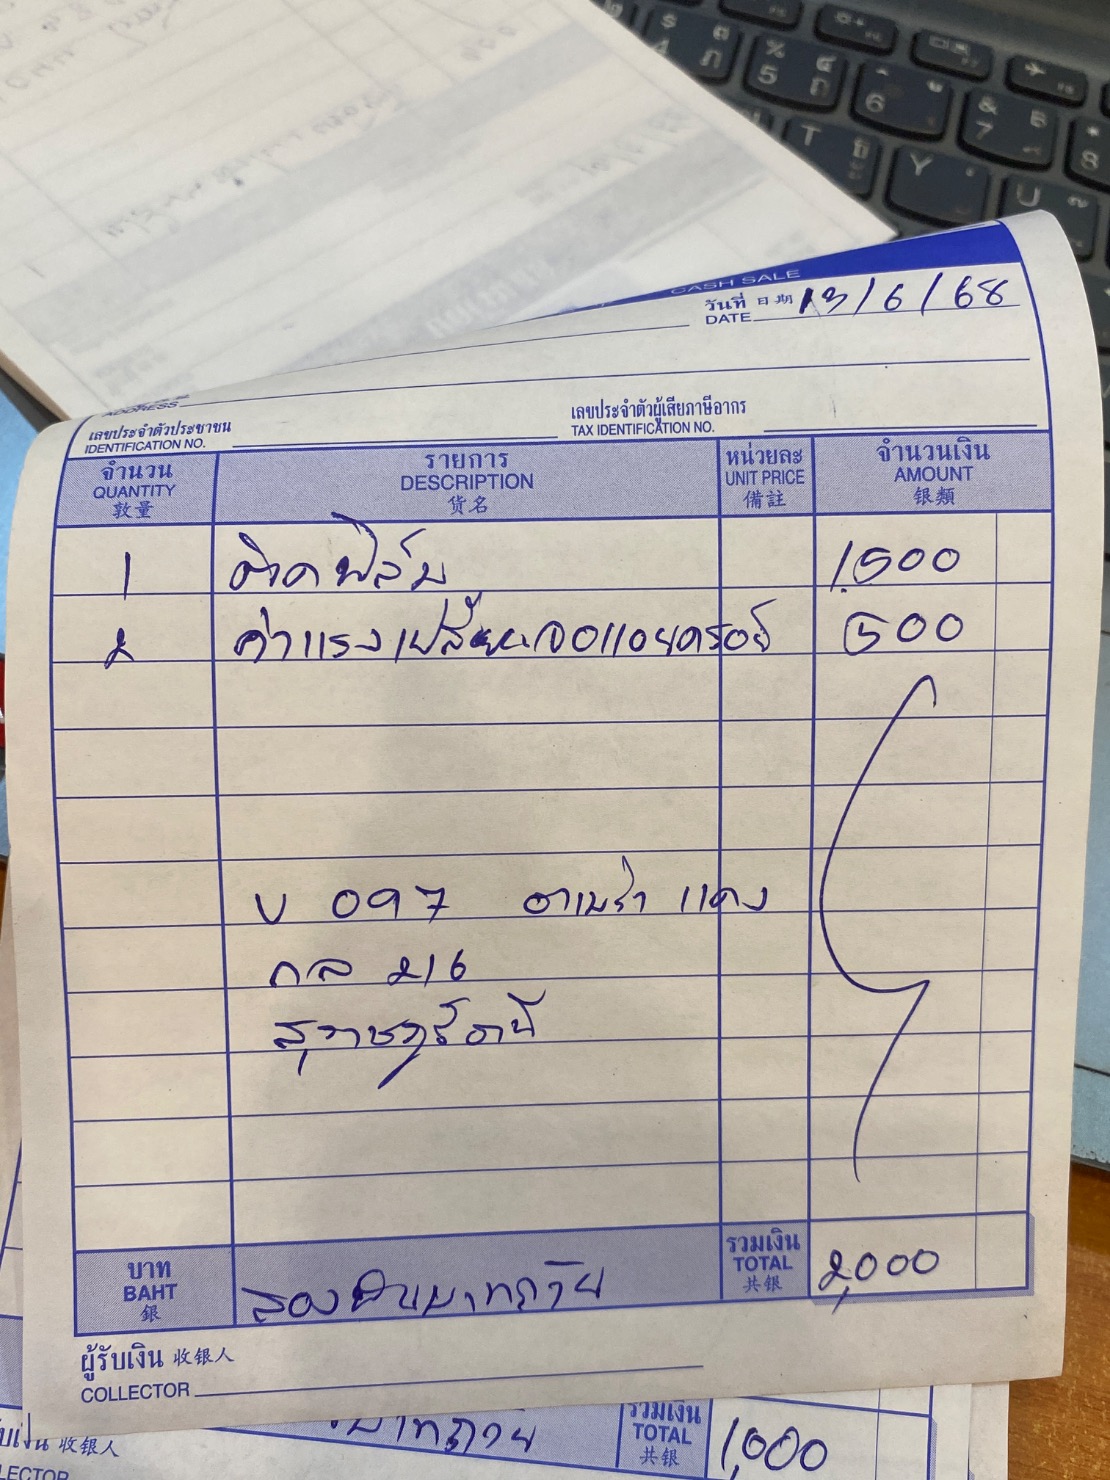 CASH SALE
วันที่ 日期 13/6/68
DATE
ADDRESS
เลขประจำตัวประชาชน เลขประจำตัวผู้เสียภาษีอากร
IDENTIFICATION NO. TAX IDENTIFICATION NO.
จำนวน รายการ หน่วยละ จำนวนเงิน
QUANTITY DESCRIPTION UNIT PRICE AMOUNT
敦量 货名 備註 银類
1 ติดฟิล์ม 1,500
2 ค่าแรงเปลี่ยนจอแอนดรอย์ 500
บ 097 อาเมร่า แดง
กล 216
สุราษฎร์ธานี
บาท สองพันบาทถ้วน รวมเงิน 2,000
BAHT TOTAL
銀 共银
ผู้รับเงิน 收银人
COLLECTOR
บาทถ้วน รวมเงิน 1,000
收银人 TOTAL
共银
% 5 6 & 7 8
T Y U